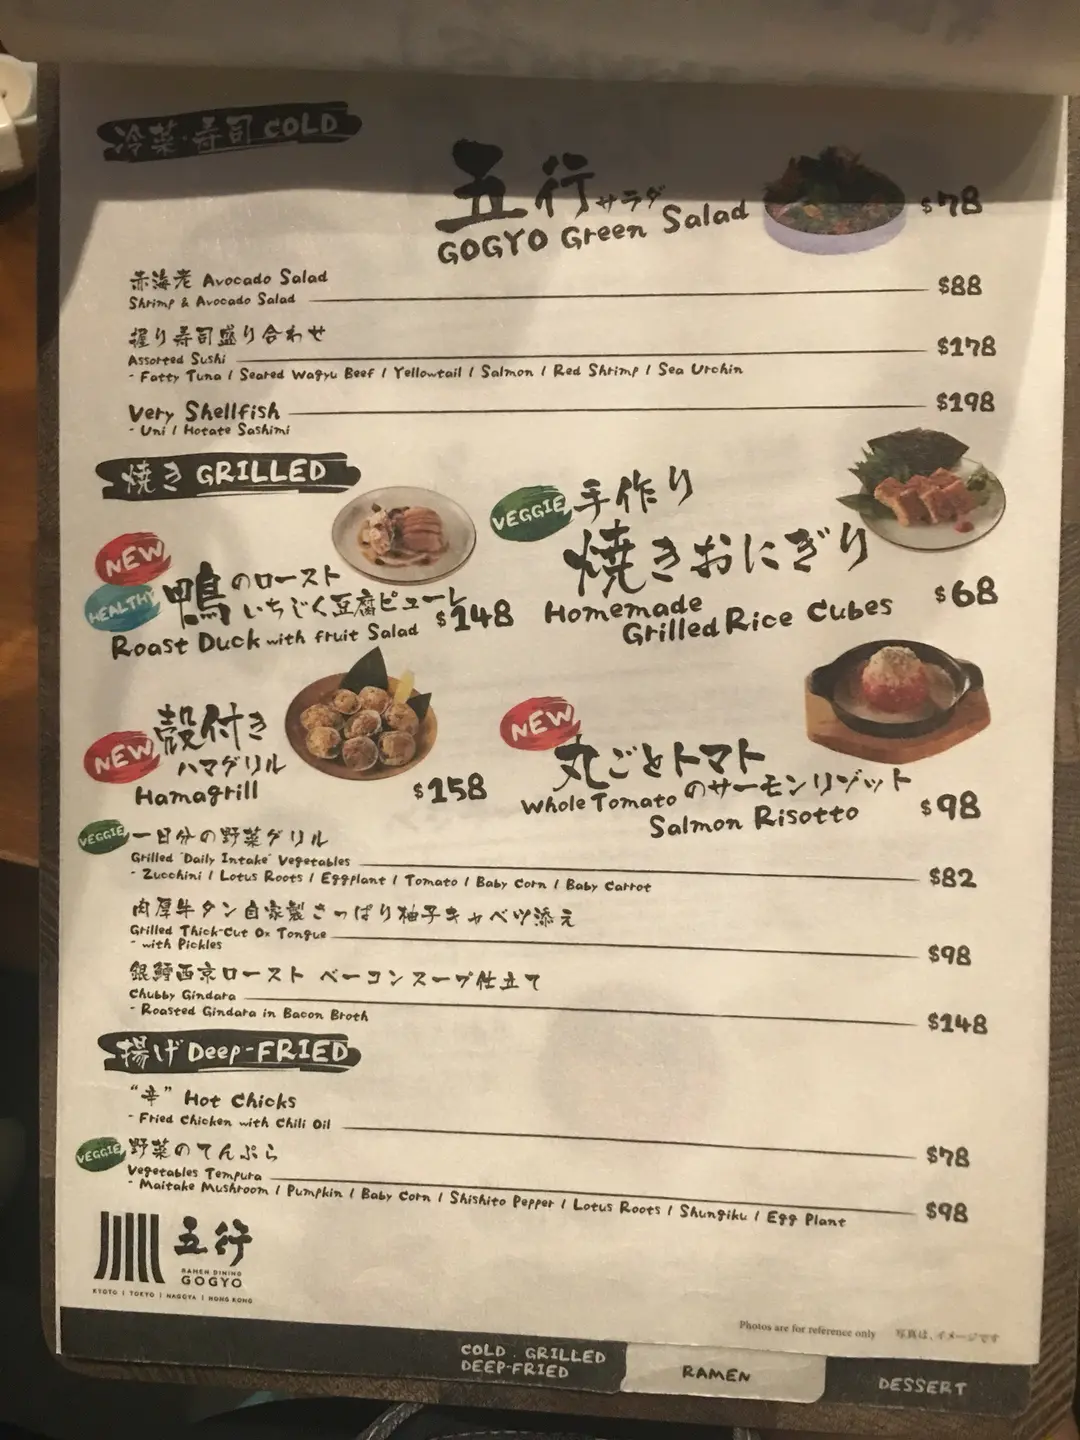 冷菜・寿司 COLD
五行サラダ
GOGYO Green Salad
$78
赤海老 Avocado Salad
Shrimp & Avocado Salad $88
握り寿司盛り合わせ
Assorted Sushi $178
- Fatty Tuna / Seared Wagyu Beef / Yellowtail / Salmon / Red Shrimp / Sea Urchin
Very Shellfish $198
- Uni / Hotate Sashimi
焼き GRILLED
NEW
HEALTHY
鴨のロースト
いちじく豆腐ピューレ
Roast Duck with fruit Salad $148
VEGGIE 手作り
焼きおにぎり
Homemade
Grilled Rice Cubes $68
NEW 殻付き
ハマグリル
Hamagrill $158
NEW
丸ごとトマト
のサーモンリゾット
Whole Tomato
Salmon Risotto $98
VEGGIE 一日分の野菜グリル
Grilled "Daily Intake" Vegetables $82
- Zucchini / Lotus Roots / Eggplant / Tomato / Baby Corn / Baby Carrot
肉厚牛タン自家製さっぱり柚子キャベツ添え
Grilled Thick-Cut Ox Tongue $98
- with Pickles
銀鱈西京ロースト ベーコンスープ仕立て
Chubby Gindara $148
- Roasted Gindara in Bacon Broth
揚げ Deep-FRIED
"辛" Hot Chicks
- Fried Chicken with Chili Oil $78
VEGGIE 野菜のてんぷら
Vegetables Tempura $98
- Maitake Mushroom / Pumpkin / Baby Corn / Shishito Pepper / Lotus Roots / Shungiku / Egg Plant
五行
RAMEN DINING
GOGYO
KYOTO | TOKYO | NAGOYA | HONG KONG
Photos are for reference only 写真は、イメージです
COLD . GRILLED
DEEP-FRIED
RAMEN
DESSERT